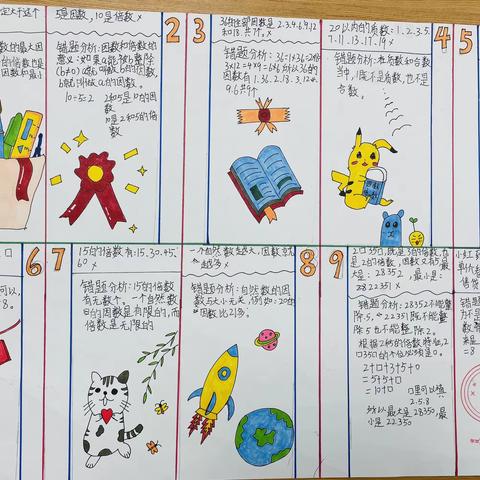 定大于这个
数的最大因
的倍数也是
因数和最小
5是因数,10是倍数 ×
错题分析:因数和倍数的
意义:如果a能被b整除
(b≠0)a就叫做b的倍数
b就叫做a的因数。
10÷5=2
2和5是10的因
数
10是2和5的倍
数
2
3
36的全部因数是2.3.4.6.9.12
和18.共7个。×
错题分析:36=1×36=2×18
3×12=4×9=6×6所以36的
因数有1.36.2.18.3.12.4.
9.6共9个
20以内的质数:1.2.3.5.
7.11.13.17.19 ×
错题分析:在质数和合数
当中,1既不是质数,也不是
合数。
4
5
口
可以,
8。
6
7
15的倍数有:15.30.45.
60 ×
错题分析:15的倍数
有无数个。一个自然数
的因数是有限的,而
倍数是无限的
一个自然数越大,因数就
越多 ×
错题分析:自然数的因
数与大小无关,例如:20的
因数比21多。
8
9
2口35口,既是3的倍数,有
是2的倍数,因数又有5,最
大是:28352,最小是:
22351 ×
错题分析:28352不能整
除5。22351既不能整
除5也不能整除2。
根据2和5的倍数特征,2
口35口的个位必须是0。
2+口+3+5+0
=5+5+口
=10+口
口里可以填
2.5.8
所以最大是28350,最
小是22350
小红
单价
售货
错
力不是
数,
来是
=8